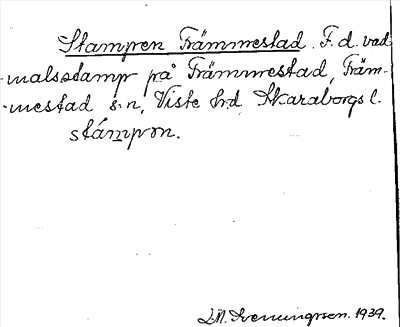 Stampen Främmestad. F. d. vad
malsstamp på Främmestad, Främ-
mestad s:n, Viste hd Skaraborgs l.
stámpɷn.
1939.